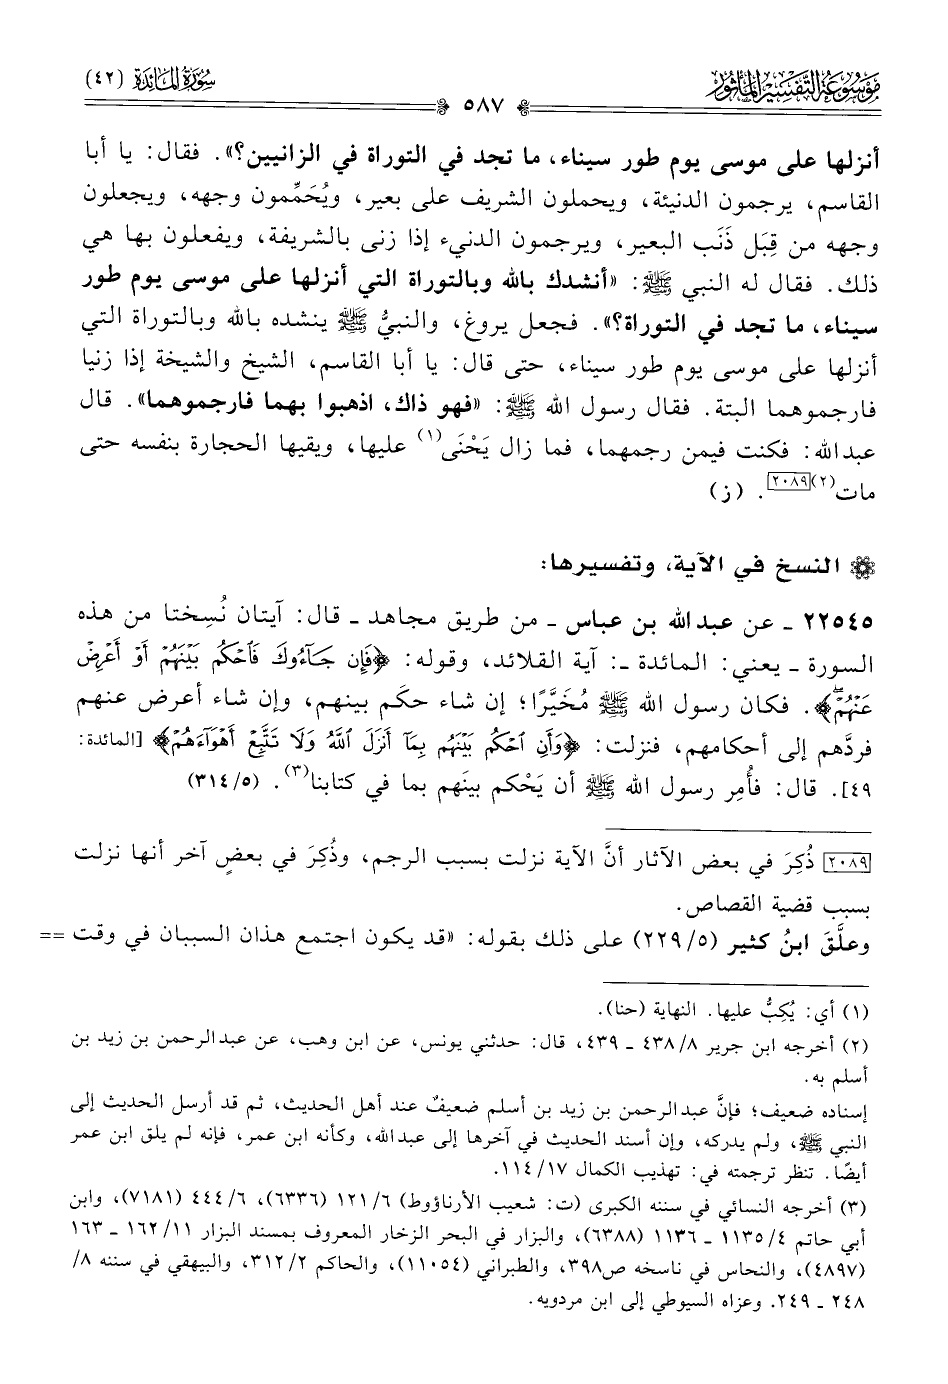 مَوْسُوعَةُ التَّفْسِيرِ المَأْثُورِ
سُورَةُ المَائِدَة (٤٢)
٥٨٧
أنزلها على موسى يوم طور سيناء، ما تجد في التوراة في الزانيين؟». فقال: يا أبا
القاسم، يرجمون الدنيئة، ويحملون الشريف على بعير، ويُحَمِّمون وجهه، ويجعلون
وجهه من قِبَل ذَنَب البعير، ويرجمون الدنيء إذا زنى بالشريفة، ويفعلون بها هي
ذلك. فقال له النبي ﷺ: «أنشدك بالله وبالتوراة التي أنزلها على موسى يوم طور
سيناء، ما تجد في التوراة؟». فجعل يروغ، والنبيُّ ﷺ ينشده بالله وبالتوراة التي
أنزلها على موسى يوم طور سيناء، حتى قال: يا أبا القاسم، الشيخ والشيخة إذا زنيا
فارجموهما البتة. فقال رسول الله ﷺ: «فهو ذاك، اذهبوا بهما فارجموهما». قال
عبدالله: فكنت فيمن رجمهما، فما زال يَحْنَى(١) عليها، ويقيها الحجارة بنفسه حتى
مات(٢)[٢٠٨٩]. (ز)
النسخ في الآية، وتفسيرها:
٢٢٥٤٥ ـ عن عبدالله بن عباس ـ من طريق مجاهد ـ قال: آيتان نُسِختا من هذه
السورة ـ يعني: المائدة ـ: آية القلائد، وقوله: ﴿فَإِن جَآءُوكَ فَٱحْكُم بَيْنَهُمْ أَوْ أَعْرِضْ
عَنْهُمْۖ﴾. فكان رسول الله ﷺ مُخَيَّرًا؛ إن شاء حكَم بينهم، وإن شاء أعرض عنهم
فردَّهم إلى أحكامهم، فنزلت: ﴿وَأَنِ ٱحْكُم بَيْنَهُم بِمَآ أَنزَلَ ٱللَّهُ وَلَا تَتَّبِعْ أَهْوَآءَهُمْ﴾ [المائدة:
٤٩]. قال: فأُمِر رسول الله ﷺ أن يَحْكم بينَهم بما في كتابنا(٣). (٥/ ٣١٤)
[٢٠٨٩] ذُكِرَ في بعض الآثار أنَّ الآية نزلت بسبب الرجم، وذُكِرَ في بعضٍ آخر أنها نزلت
بسبب قضية القصاص.
وعلَّقَ ابنُ كثير (٥/ ٢٢٩) على ذلك بقوله: «قد يكون اجتمع هذان السببان في وقت ==
(١) أي: يُكِبُّ عليها. النهاية (حنا).
(٢) أخرجه ابن جرير ٨/ ٤٣٨ ـ ٤٣٩، قال: حدثني يونس، عن ابن وهب، عن عبدالرحمن بن زيد بن
أسلم به.
إسناده ضعيف؛ فإنَّ عبدالرحمن بن زيد بن أسلم ضعيفٌ عند أهل الحديث، ثم قد أرسل الحديث إلى
النبي ﷺ، ولم يدركه، وإن أسند الحديث في آخرها إلى عبدالله، وكأنه ابن عمر، فإنه لم يلق ابن عمر
أيضًا. تنظر ترجمته في: تهذيب الكمال ١٧/ ١١٤.
(٣) أخرجه النسائي في سننه الكبرى (ت: شعيب الأرناؤوط) ٦/ ١٢١ (٦٣٣٦)، ٦/ ٤٤٤ (٧١٨١)، وابن
أبي حاتم ٤/ ١١٣٥ ـ ١١٣٦ (٦٣٨٨)، والبزار في البحر الزخار المعروف بمسند البزار ١١/ ١٦٢ ـ ١٦٣
(٤٨٩٧)، والنحاس في ناسخه ص٣٩٨، والطبراني (١١٠٥٤)، والحاكم ٢/ ٣١٢، والبيهقي في سننه ٨/
٢٤٨ ـ ٢٤٩. وعزاه السيوطي إلى ابن مردويه.